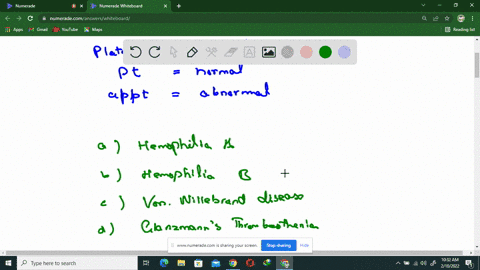 Numerade
Numerade Whiteboard
numerade.com/answers/whiteboard/
Apps
Gmail
YouTube
Maps
Reading list
Plat
pt = normal
appt = abnormal
a) Hemophilia A
b) Hemophilia B
c) Von. Willebrand disease
d) Glanzmann's Thrombasthenia
www.numerade.com is sharing your screen.
Stop sharing
Hide
Type here to search
10:02 AM
2/10/2022